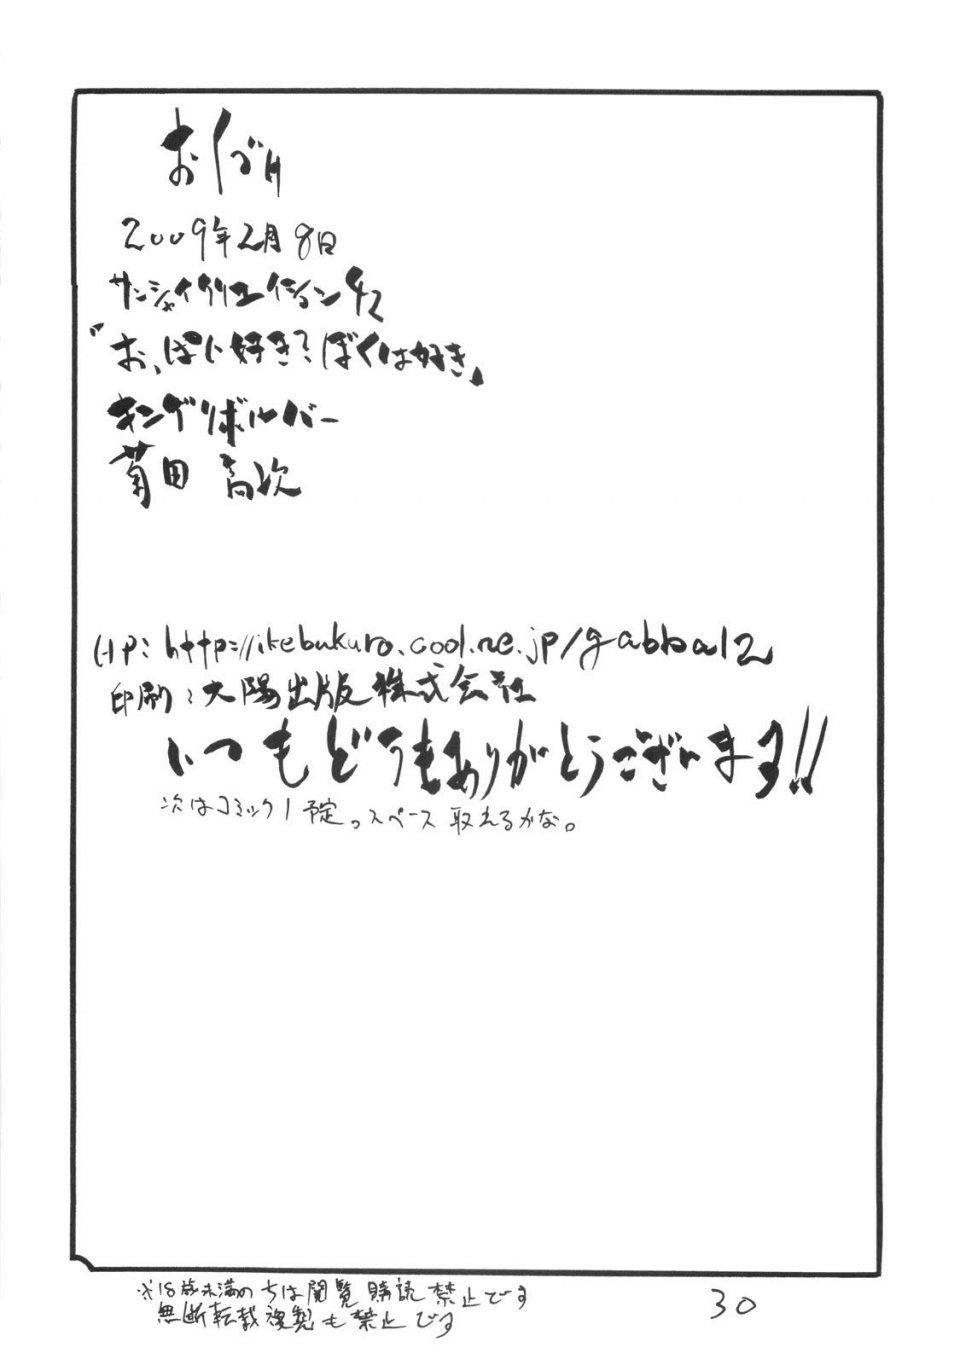 おくづけ
2009年2月8日
サンシャイクリエイション42
『お、ぱい好き?ぼくは好き』
キングリボルバー
菊田 高次
HP:http://ikebukuro.cool.ne.jp/gabba12
印刷:大陽出版株式会社
いつもどうもありがとうございます!!
次はコミック1予定。スペース取れるかな。
※18歳未満の 閲覧購読禁止です
無断転載複製も禁止です
30